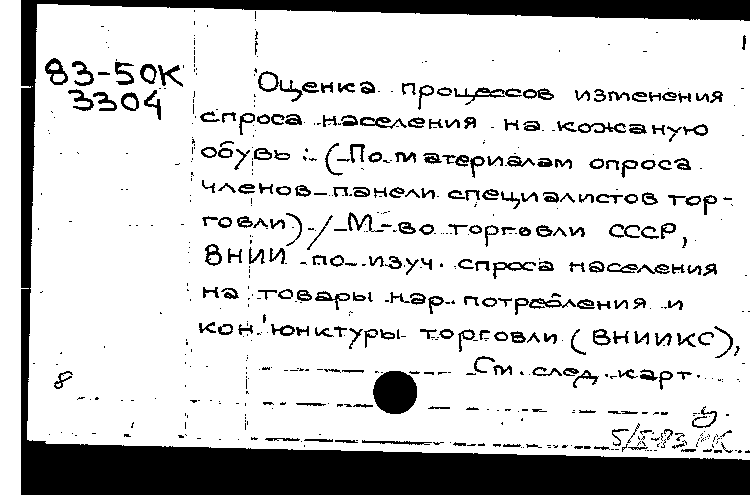 1
83-50К
3304
Оценка процессов изменения
спроса населения на кожаную
обувь : (По материалам опроса
членов панели специалистов тор-
говли) / М-во торговли СССР,
ВНИИ по изуч. спроса населения
на товары нар. потребления и
кон'юнктуры торговли (ВНИИКС),
См. след. карт.
8